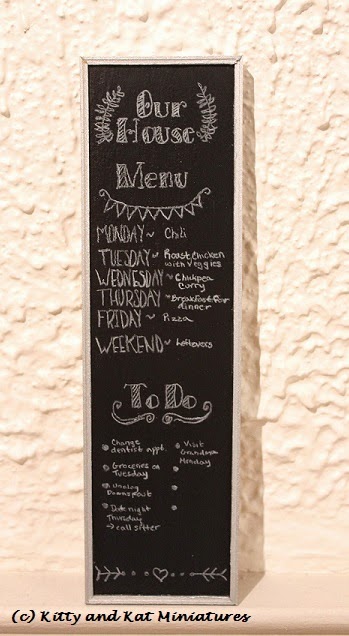 Our
House
Menu
MONDAY~ Chili
TUESDAY~ Roast Chicken
with Veggies
WEDNESDAY~ Chickpea
Curry
THURSDAY~ Breakfast for
dinner
FRIDAY~ Pizza
WEEKEND~ Leftovers
To Do
Change
dentist appt.
Groceries on
Tuesday
Unclog
Downspout
Date night
Thursday
→ call sitter
Visit
Grandma
Monday
(c) Kitty and Kat Miniatures